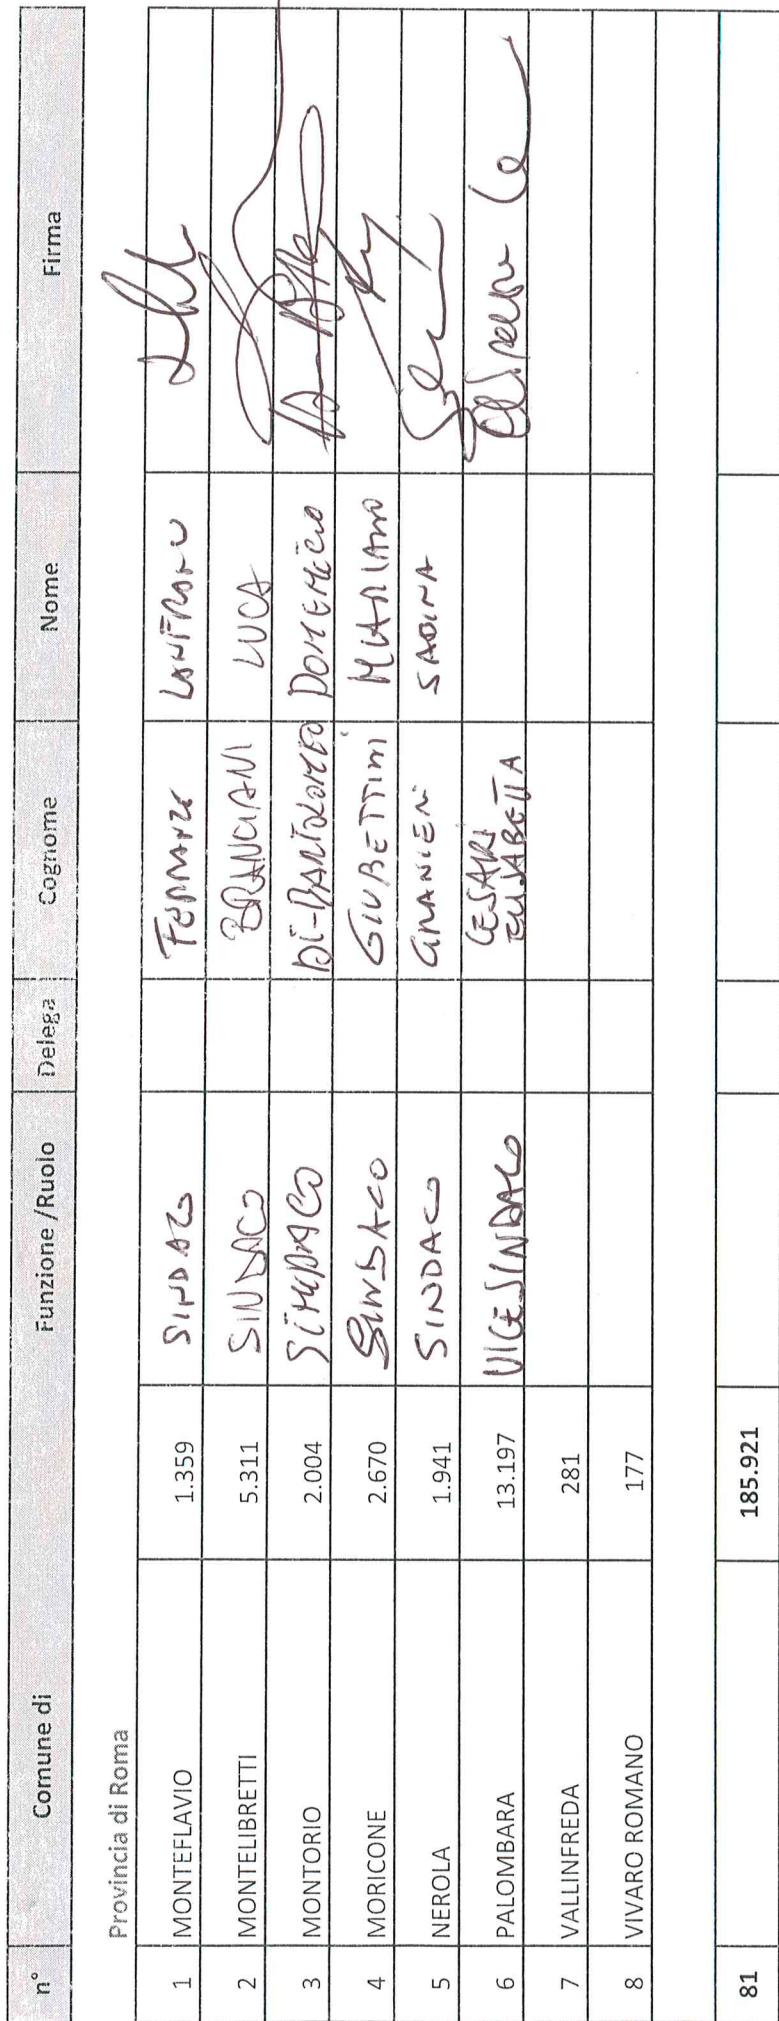 n° Comune di Funzione /Ruolo Delega Cognome Nome Firma
Provincia di Roma
1 MONTEFLAVIO 1.359 SINDACO LANFRANCO
2 MONTELIBRETTI 5.311 SINDACO BRANCIANI LUCA
3 MONTORIO 2.004 SINDACO DI-BARTOLOMEO DOMENICO
4 MORICONE 2.670 SINDACO GIUBETTINI MARIANO
5 NEROLA 1.941 SINDACO GRANIERI SABINA
6 PALOMBARA 13.197 VICESINDACO CESARI ELISABETTA
7 VALLINFREDA 281
8 VIVARO ROMANO 177
81 185.921